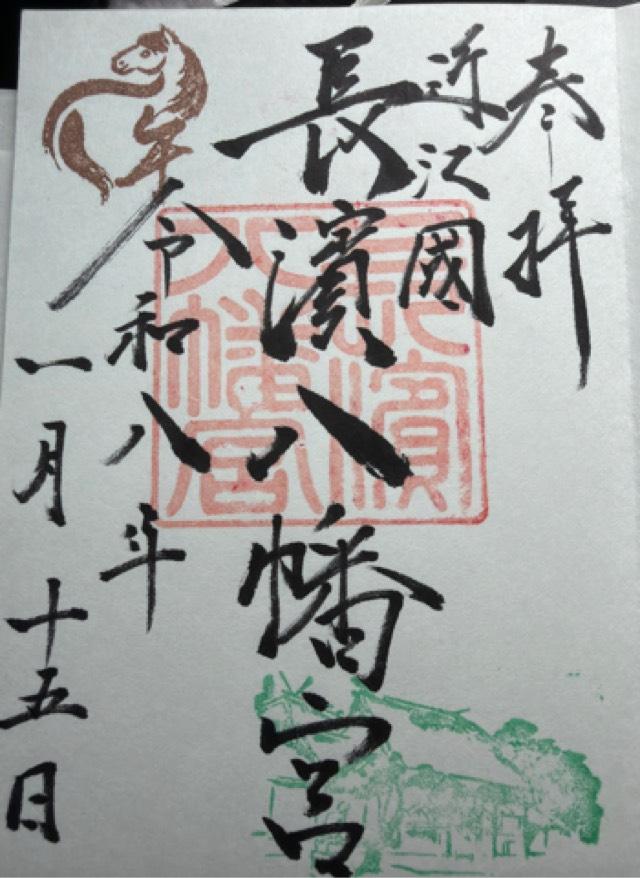 奉拝
近江國
長濱八幡宮
長濱
八幡宮
令和八年
一月十五日
午